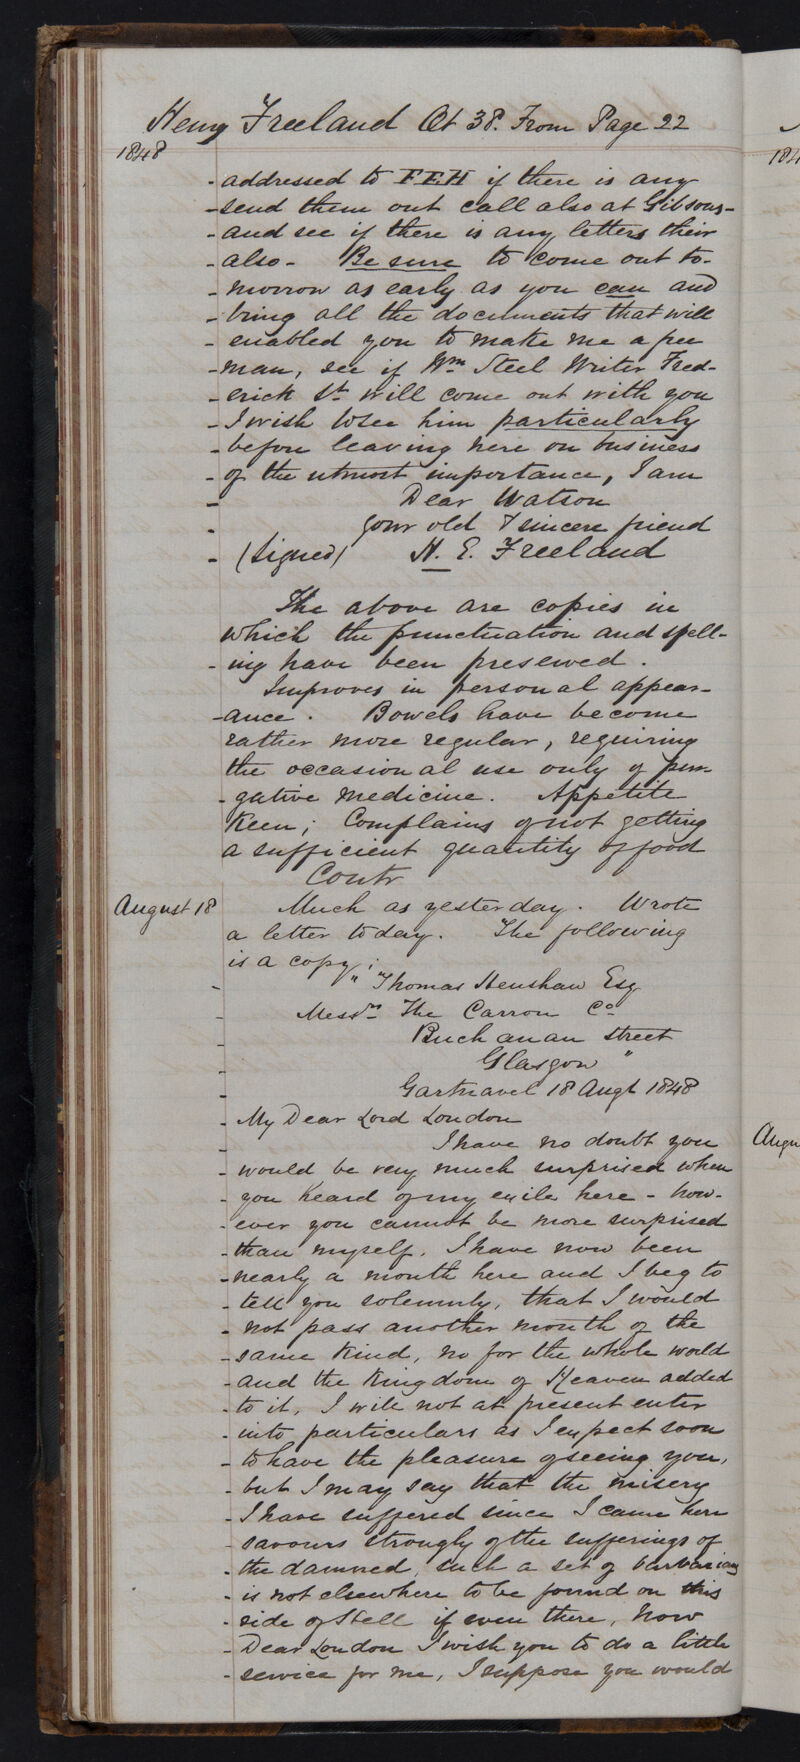 Henry Freeland Æt 38. From Page 22
1848
- addressed to FEH if there is any
- send them out call also at Gibsons -
- and see if there is any letters their
- also - Be sure to come out to-
- morrow as early as you can and
- bring all the documents that will
- enabled you to make me a free
- man, see if Wm Steel Writer Fred-
- erick St will come out with you
- I wish to see him particularly
- before leaving here on business
- of the utmost importance, I am
- Dear Watson
- your old & sincere friend
- (Signed) H. E. Freeland
The above are copies in
which the punctuation and spell-
- ing have been preserved.
Improves in personal appear-
- ance. Bowels have become
rather more regular, requiring
the occasional use only of pur-
- gative medicine. Appetite
Keen; Complains of not getting
a sufficient quantity of food
Contr
August 18 Much as yesterday. Wrote
a letter today. The following
is a copy;
- " Thomas Henshaw Esq
- Messrs The Carron Co
- Buchanan Street
- Glasgow "
- Gartnavel 18 Augt 1848
- My Dear Lord London
- I have no doubt you
- would be very much surprised when
- you heard of my exile here - how-
- ever you cannot be more surprised
- than myself. I have now been
- nearly a month here and I beg to
- tell you solemnly, that I would
- not pass another month of the
- same kind, no for the whole world
- and the Kingdom of Heaven added
- to it, I will not at present enter
- into particulars as I expect soon
- to have the pleasure of seeing you,
- but I may say that the misery
- I have suffered since I came here
- savours strongly of the sufferings of
- the damned, such a set of barbarians
- is not elsewhere to be found on this
- side of Hell if even there, Now
- Dear London I wish you to do a little
- service for me, I suppose you would
184
Augu